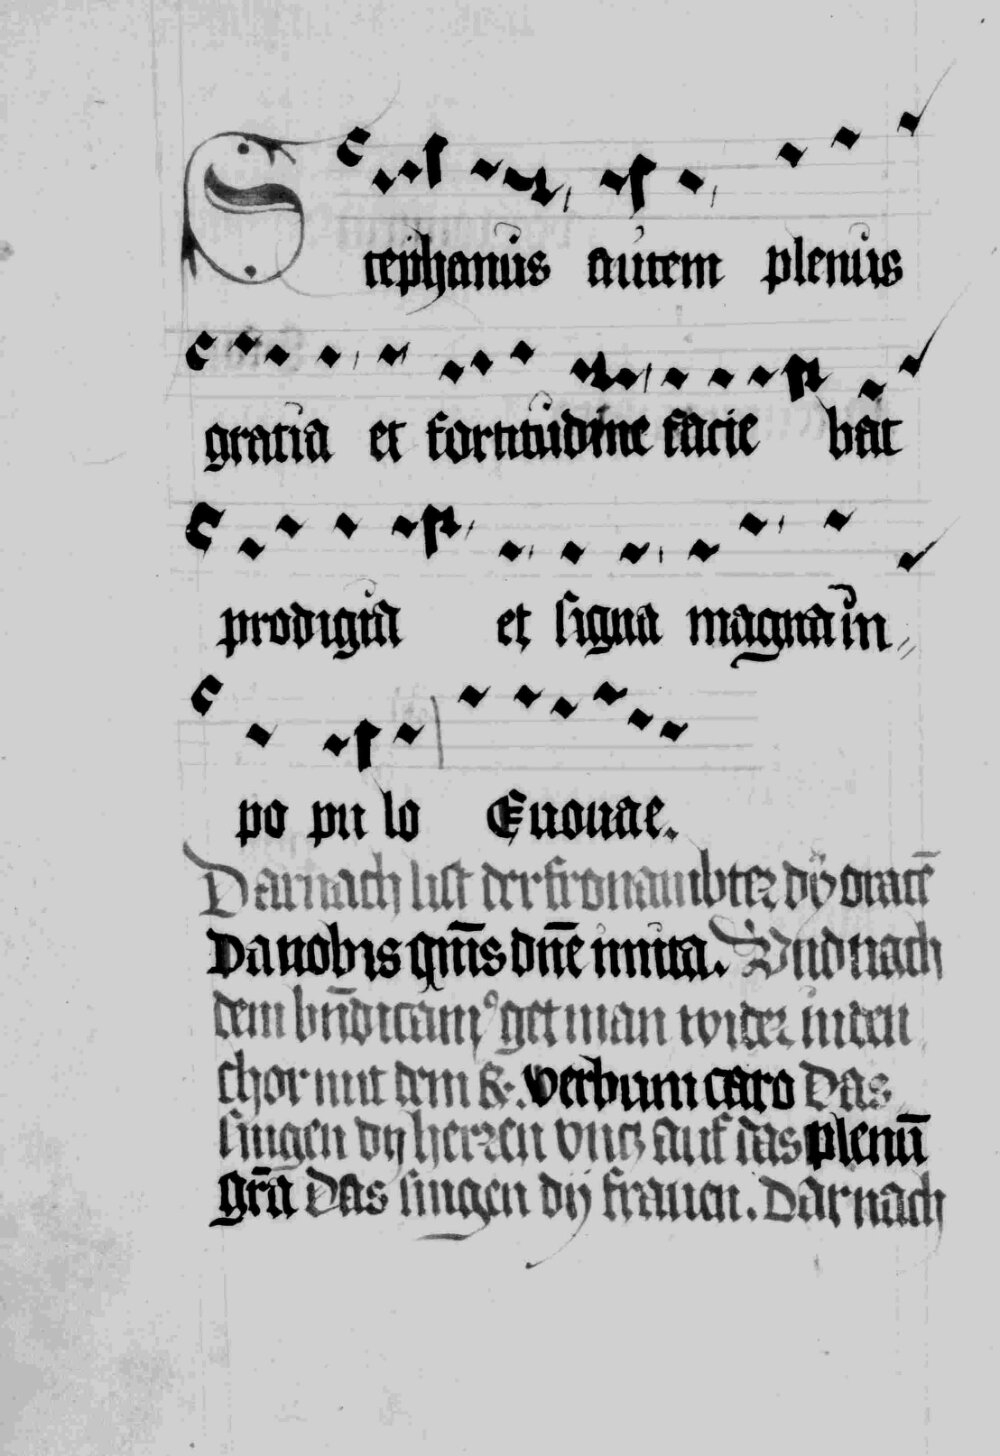 Stephanus autem plenus
gratia et fortitudine facie bat
prodigia et signa magna in
po pu lo Euouae.
Darnach list der fronambter dÿ oracē
Da nobis qm̄s dn̄e imita. Vnd nach
dem bn̄dicamꝰ get man wider in den
chor mit dem ℟. verbum caro Das
singen dy herren vntz auf das plenū
gr̄a Das singen dÿ frauen. Darnach